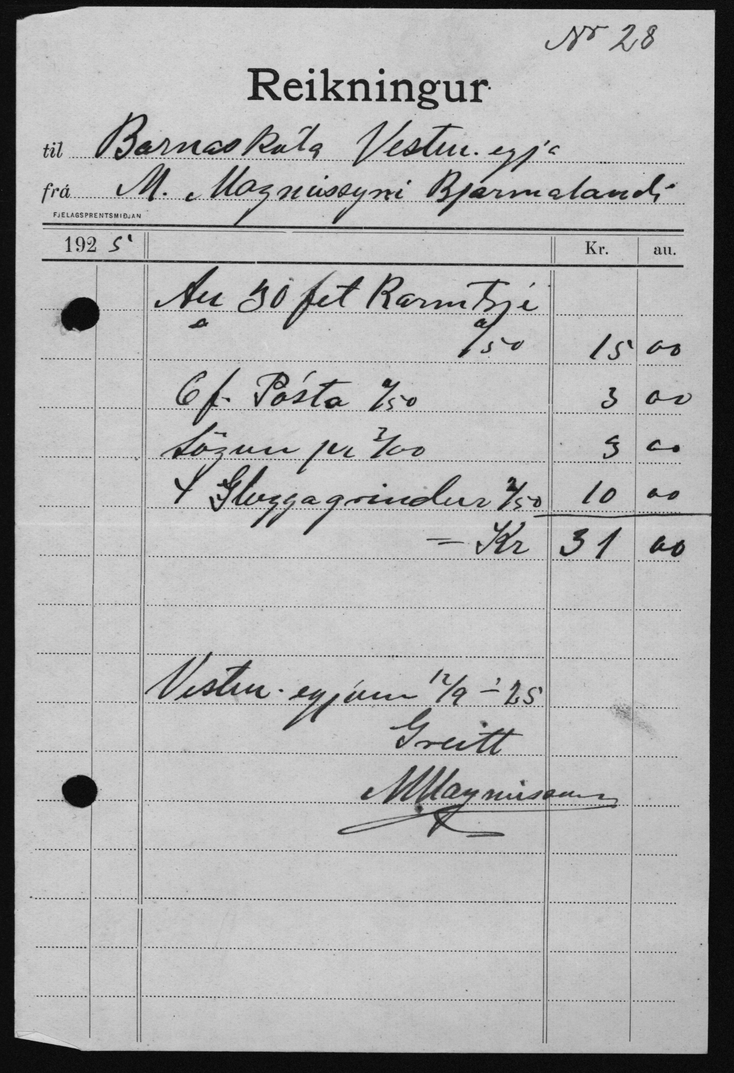 Nr 28
Reikningur
til Barnaskóla Vestm.eyja
frá M. Magnússyni Bjarmalandi
FJELAGSPRENTSMIÐJAN
1925 Kr. au.
30 fet Karmtré
á /50 15 00
6 f. Pósta á /50 3 00
Sögun pr 3/00 3 00
4 Gluggagrindur 2/50 10 00
= Kr 31 00
Vestm.eyjum 12/9 - 25
Greitt
MMagnússon